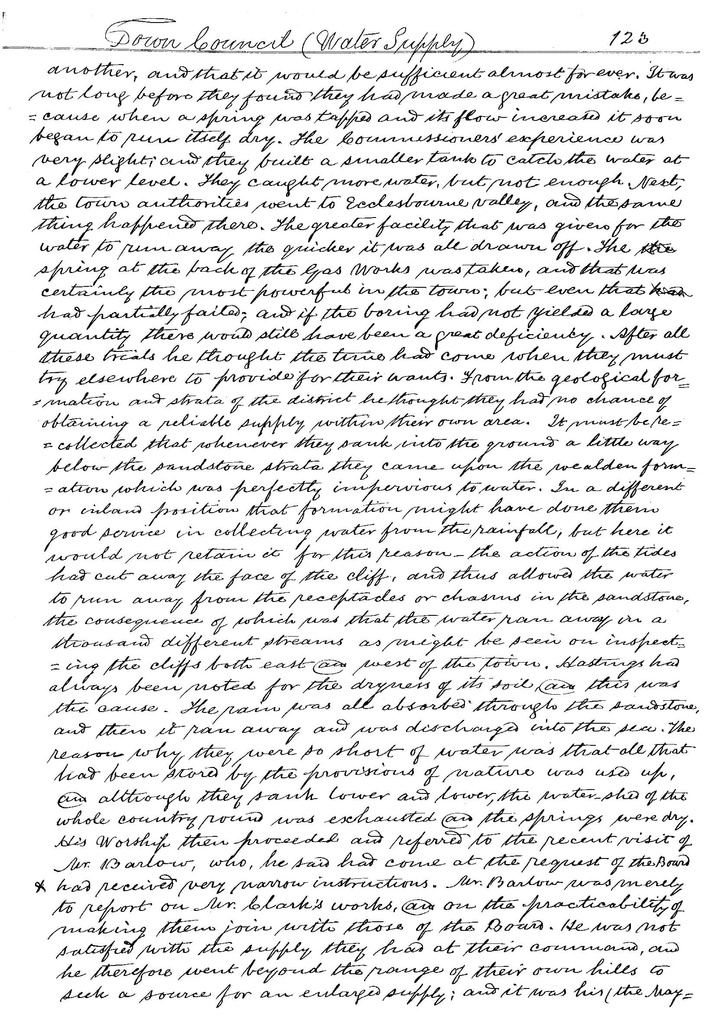 Town Council (Water Supply) 123
another, and that it would be sufficient almost for ever. It was
not long before they found they had made a great mistake, be=
=cause when a spring was tapped and its flow increased it soon
began to run itself dry. The Commissioners' experience was
very slight; and they built a smaller tank to catch the water at
a lower level. They caught more water, but not enough. Next,
the town authorities went to Ecclesbourne Valley, and the same
thing happened there. The greater facility that was given for the
water to run away the quicker it was all drawn off. The the
spring at the back of the Gas Works was taken, and that was
certainly the most powerful in the town; but even that had
had partially failed; and if the boring had not yielded a large
quantity there would still have been a great deficiency. After all
these trials he thought the time had come when they must
try elsewhere to provide for their wants. From the geological for=
=mation and strata of the district he thought they had no chance of
obtaining a reliable supply within their own area. It must be re=
=collected that whenever they sank into the ground a little way
below the sandstone strata they came upon the wealden form=
=ation which was perfectly impervious to water. In a different
or inland position that formation might have done them
good service in collecting water from the rainfall, but here it
would not retain it for this reason – the action of the tides
had cut away the face of the cliff, and thus allowed the water
to run away from the receptacles or chasms in the sandstone,
the consequence of which was that the water ran away in a
thousand different streams as might be seen on inspect=
=ing the cliffs both east an west of the town. Hastings had
always been noted for the dryness of its soil an this was
the cause. The rain was all absorbed through the sandstone,
and then it ran away and was discharged into the sea. The
reason why they were so short of water was that all that
had been stored by the provisions of nature was used up,
an although they sank lower and lower, the water-shed of the
whole country round was exhausted an the springs were dry.
His Worship then proceeded and referred to the recent visit of
Mr. Barlow, who, he said had come at the request of the Board
x had received very narrow instructions. Mr. Barlow was merely
to report on Mr. Clark's works, an on the practicability of
making them join with those of the Board. He was not
satisfied with the supply they had at their command, and
he therefore went beyond the range of their own hills to
seek a source for an enlarged supply; and it was his (the May=